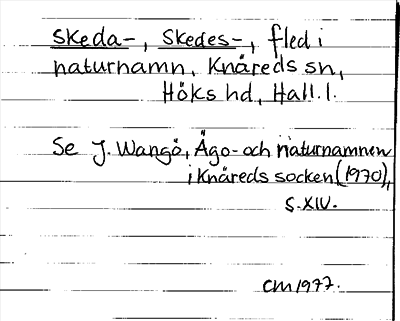 Skeda-, Skedes-, fled i
naturnamn, Knäreds sn,
Höks hd, Hall. l.
Se J. Wangö, Ägo- och naturnamnen
i Knäreds socken (1970),
s. XIV.
CM 1977.